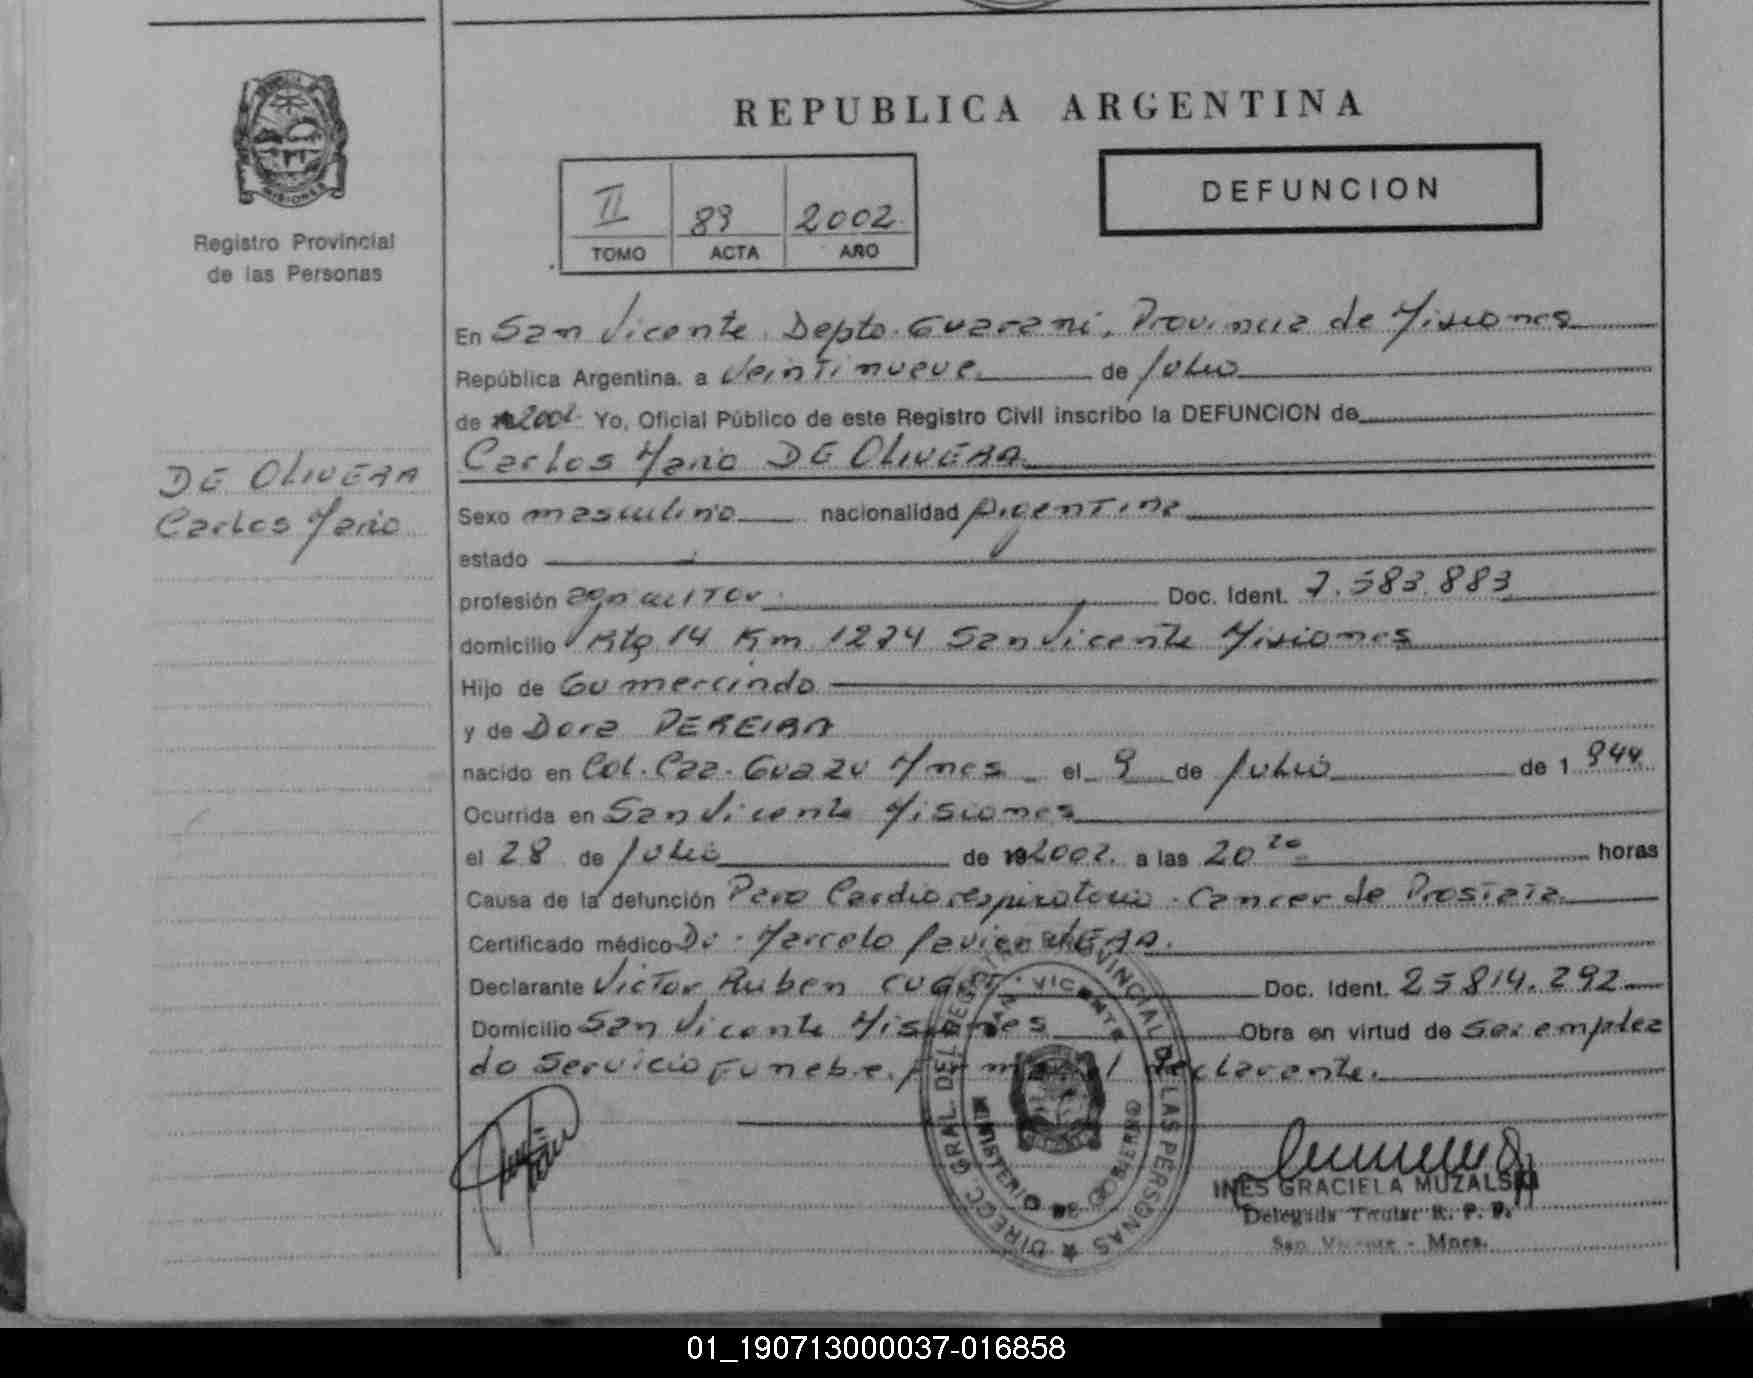 REPUBLICA ARGENTINA
MISIONES
Registro Provincial
de las Personas
II 89 2002
TOMO ACTA AÑO
DEFUNCION
En San Vicente Depto. Guarani, Provincia de Misiones
República Argentina, a Veintinueve de Julio
de 2002 Yo, Oficial Público de este Registro Civil inscribo la DEFUNCION de
Carlos Mario DE OLIVERA
DE OLIVERA
Carlos Mario
Sexo masculino nacionalidad Argentina
estado
profesión agricultor Doc. Ident. 7.583.883
domicilio Rta 14 Km 1274 San Vicente Misiones
Hijo de Gumercindo
y de Dora PEREIRA
nacido en Col. Caa-Guazu Mnes el 9 de Julio de 1 944
Ocurrida en San Vicente Misiones
el 28 de Julio de 192002 a las 20 20 horas
Causa de la defunción Paro Cardiorespiratorio - Cancer de Prostata
Certificado médico Dr. Marcelo Javier
Declarante Victor Ruben Doc. Ident. 25.814.292
Domicilio San Vicente Misiones Obra en virtud de Ser emplea
do Servicio Funebre. firma el declarante.
DIRECC. GRAL. DEL REGISTRO PROVINCIAL DE LAS PERSONAS
SAN VICENTE
MINISTERIO DE GOBIERNO
INES GRACIELA MUZALSKI
Delegada Titular R. P. P.
San Vicente - Mnes.
01_190713000037-016858